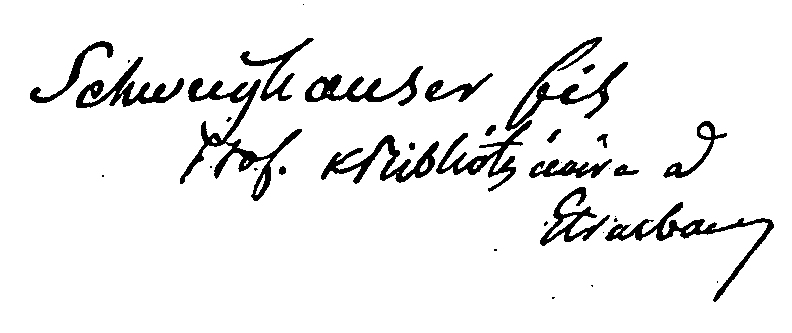 Schweighauser fils
Prof. & Bibliothécaire à
Strasbourg